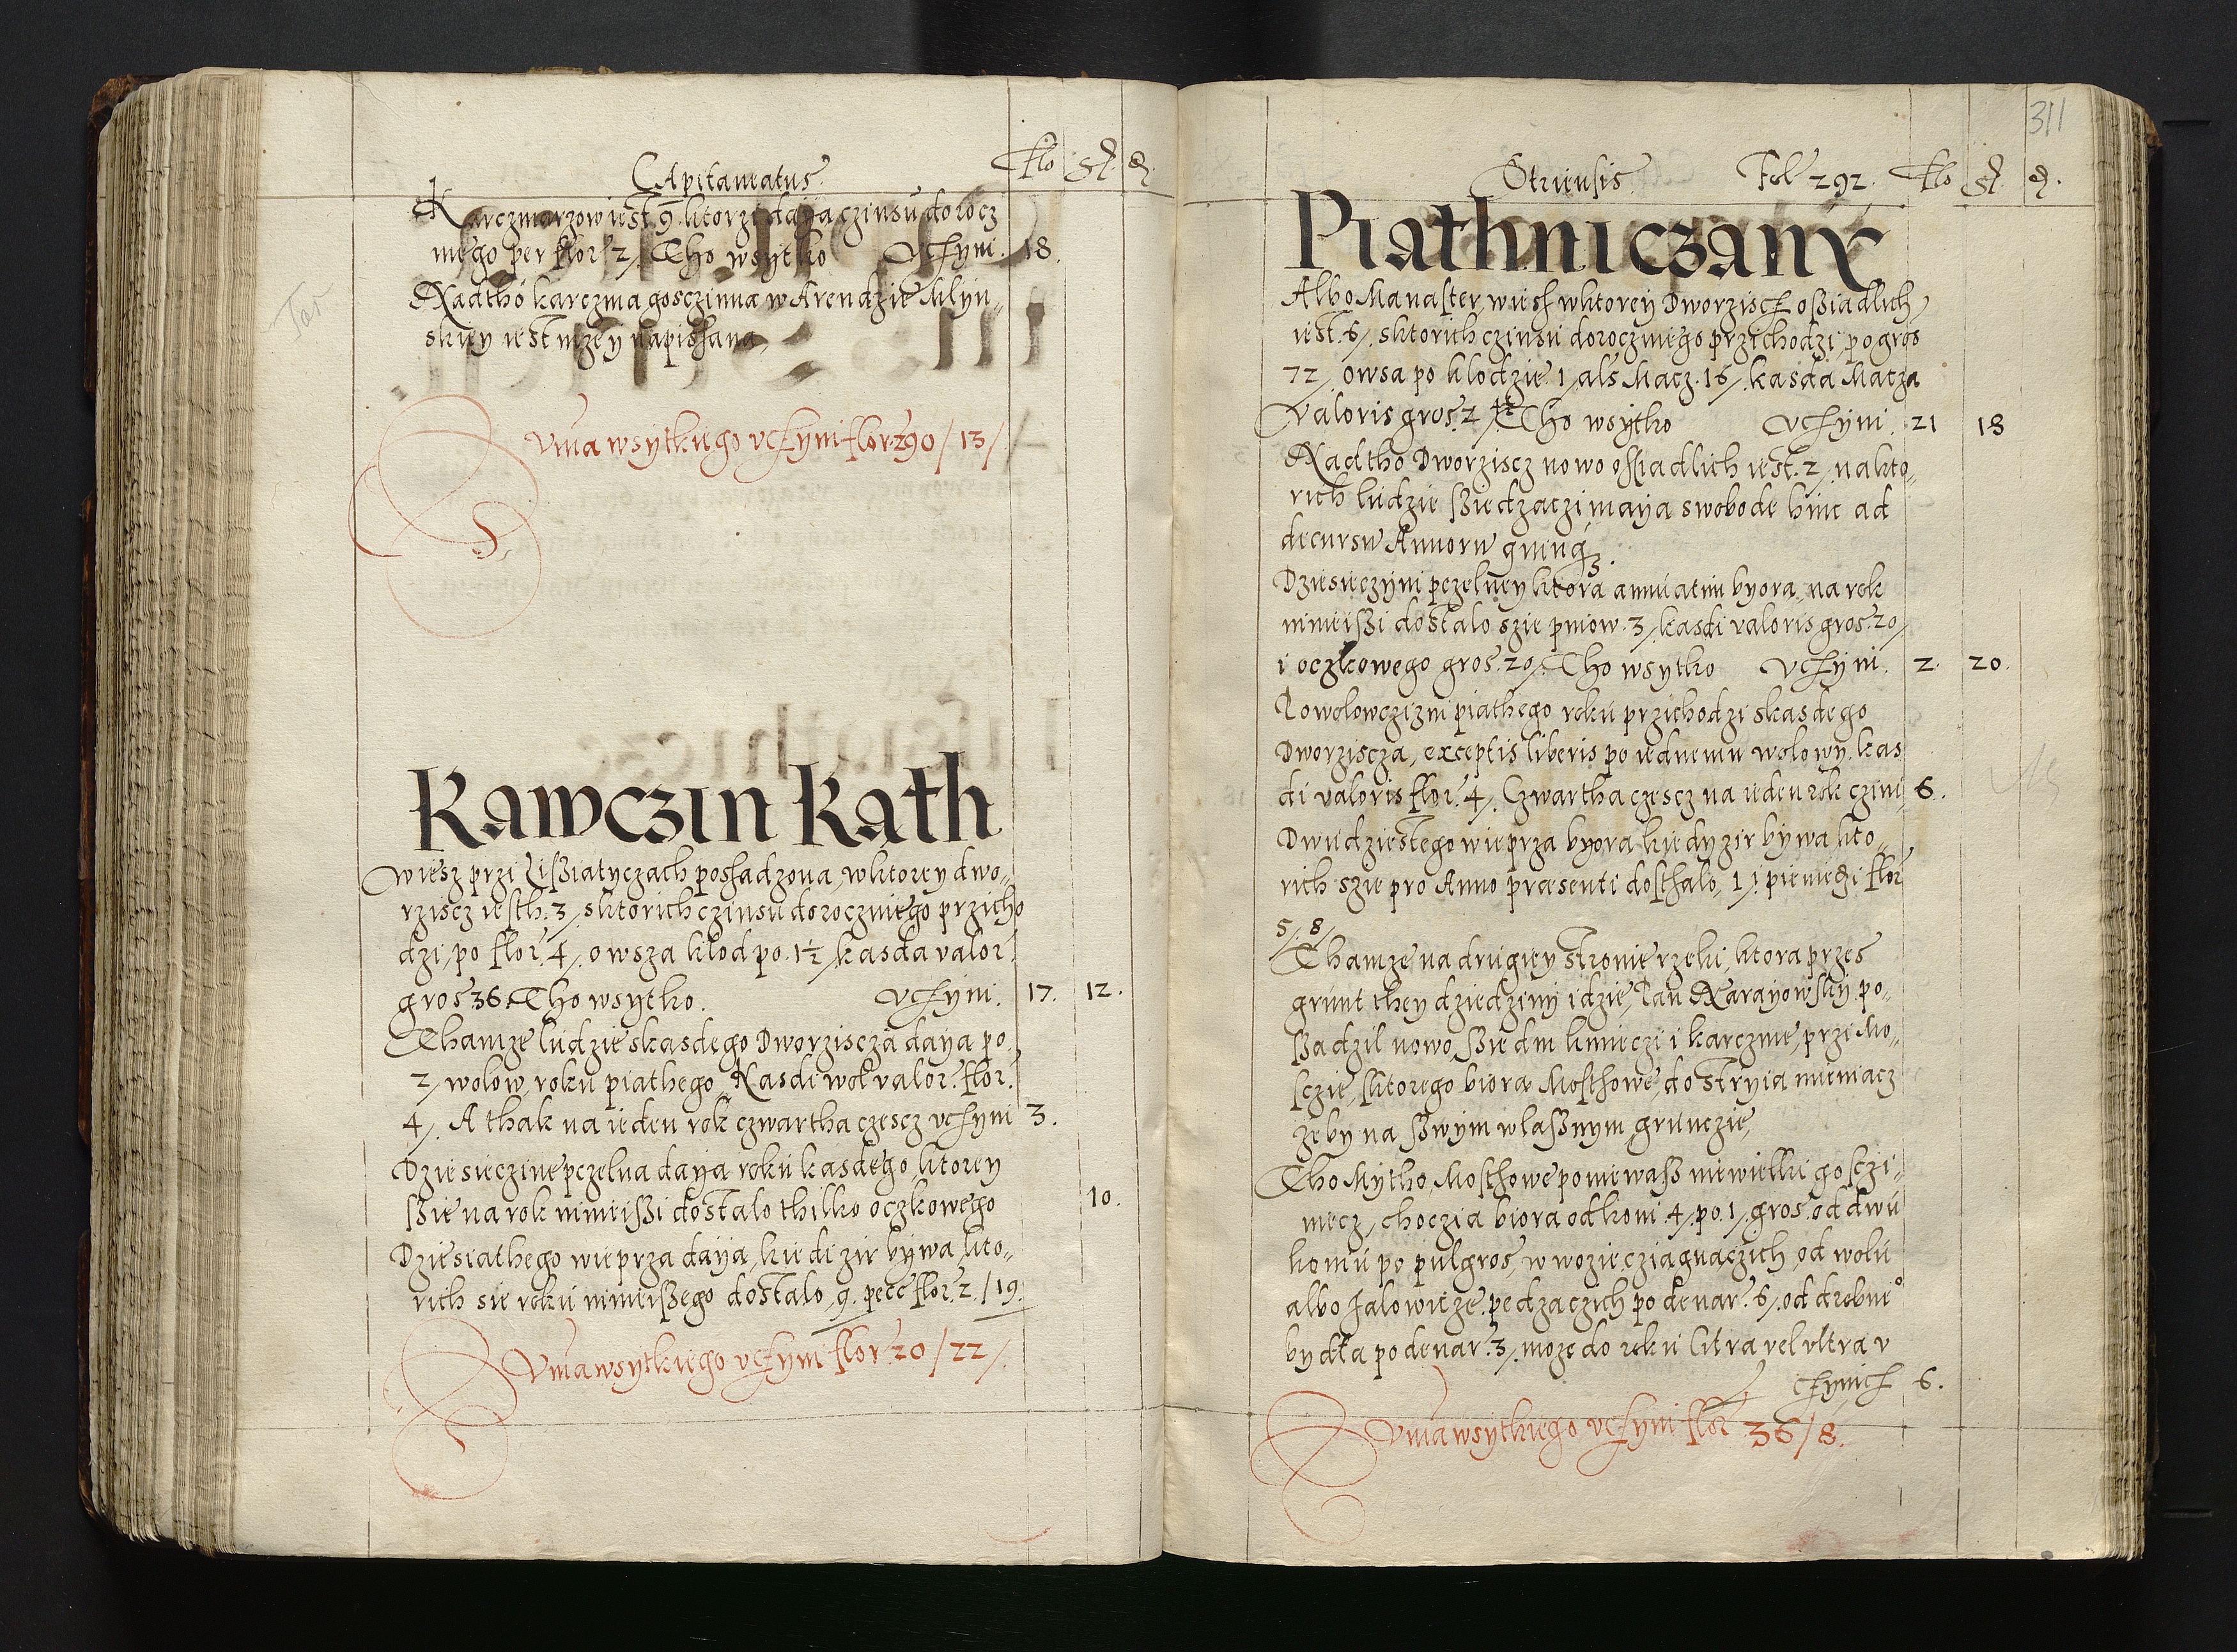 Capitaneatus. Flo gr. d.
Karczmarzow iest 9. ktorzi daya czinsu dorocz
nego per flor. 2/. Tho wsytko vczyni. 18.
Nadtho karczma gosczinna w Arendzie Mlyn-
skiey iest nizey napissana
Sum̄a wsytkiego vczyni flor. 290/13/
Kawczin Kath
Wiesz przi Lissiatyczach possadzona, w ktorey dwo-
rziscz iesth. 3/. s ktorich czinsu dorocznego przicho
dzi, po flor. 4/. owsza klod po. 1½/. kasda valor.
gros 36. Tho wsytko. vczyni. 17. 12.
Thamze ludzie s kasdego Dworziscza daya po
2/ wolow, roku piathego, Kasdi wol valor. flor.
4/. A thak na ieden rok czwartha czescz vczyni 3.
Dziesieczine pczelna daya roku kasdego, ktorey
ssie na rok ninieissi dostalo thilko oczkowego 10.
Dziesiathego wieprza daya, kiedi zir bywa, kto-
rich sie roku ninieissego dostalo, 9. pecc flor. 2./19.
Sum̄a wsytkiego vczyni flor. 20/22/.
311
Striensis. Fol 292. Flo gr. d.
Piathniczany
Albo Manaster, wies w ktorey Dworziscz ossiadlich
iest. 6/. s ktorich czinsu dorocznego przichodzi, po gros
72/. owsa po klodzie. 1/ als Macz. 16/. kasda Macza
valoris gros. 2/. Tho wsytko vczyni. 21 18
Nadtho Dworziscz nowo ossiadlich iest. 2/. na kto-
rich ludzie ssiedzaczi maya swobode hinc ad
decursu Annoru quinq3.
Dziesieczyni pczelney ktora annuatim byora, na rok
ninieissi dostalo szie pniow. 3/. kasdi valoris gros. 20/
i oczkowego gros. 20/. Tho wsytko vczyni. 2. 20.
Powolowczizni piathego roku przichodzi s kasdego
Dworziscza, exceptis liberis po iednemu wolowy. kas
di valoris flor. 4/. Czwartha czescz na ieden rok czini 6.
Dwudziestego wieprza byora kiedy zir bywa kto-
rich szie pro Anno præsenti dosthalo, 1/ i pieniedzi flor
5/. 8/
Thamze na drugiey stronie rzeki, ktora przes
grunt they dziedziny idzie, Pan Narayowsky po-
ssadzil nowo ssiedm kmieczi i karczme, przi Mo-
sczie, s ktorego biora Mosthowe, do Stryia mieniacz
zeby na sswym wlassnym grunczie,
Tho Mytho, Mosthowe poniewass niewielki gosczi-
niecz, choczia biora od koni. 4/. po. 1/. gros. od dwu
koniu po pulgros, w wozie cziagnaczich, od wolu
albo Jalowicze pedzaczich po denar. 6/. od drobne°
bydla po denar. 3/. moze do roku Citra vel vltra v
czynicz 6.
Sum̄a wsytkiego vczyni flor 36/8.